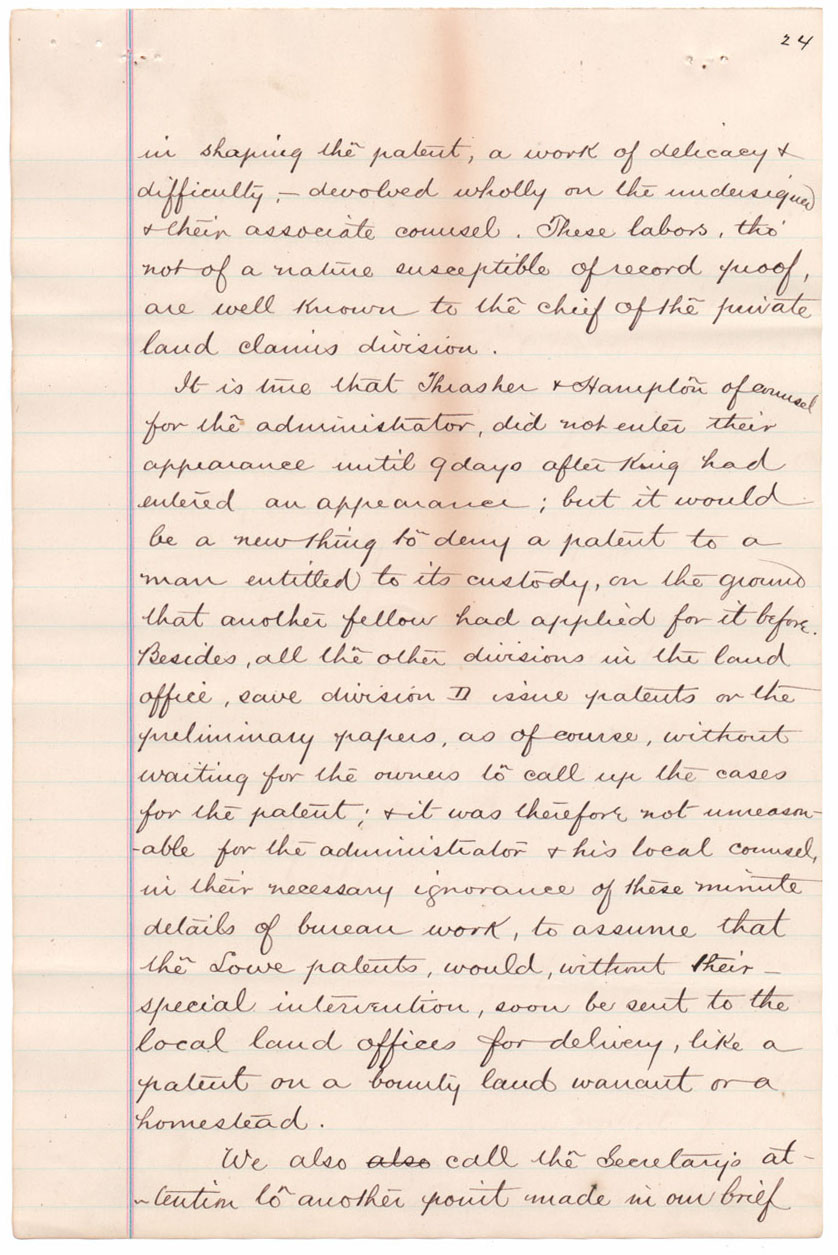 24
in shaping the patent, a work of delicacy &
difficulty, – devolved wholly on the undersigned
& their associate counsel. These labors, tho'
not of a nature susceptible of record proof,
are well known to the chief of the private
land claims division.
It is true that Thrasher & Hampton of counsel
for the administrator, did not enter their
appearance until 9 days after King had
entered an appearance; but it would
be a new thing to deny a patent to a
man entitled to its custody, on the ground
that another fellow had applied for it before.
Besides, all the other divisions in the land
office, save division D issue patents or the
preliminary papers, as of course, without
waiting for the owners to call up the cases
for the patent; & it was therefore not unreason-
-able for the administrator & his local counsel,
in their necessary ignorance of these minute
details of bureau work, to assume that
the Lowe patents, would, without their –
special intervention, soon be sent to the
local land offices for delivery, like a
patent on a bounty land warrant or a
homestead.
We also also call the Secretary's at-
-tention to another point made in our brief